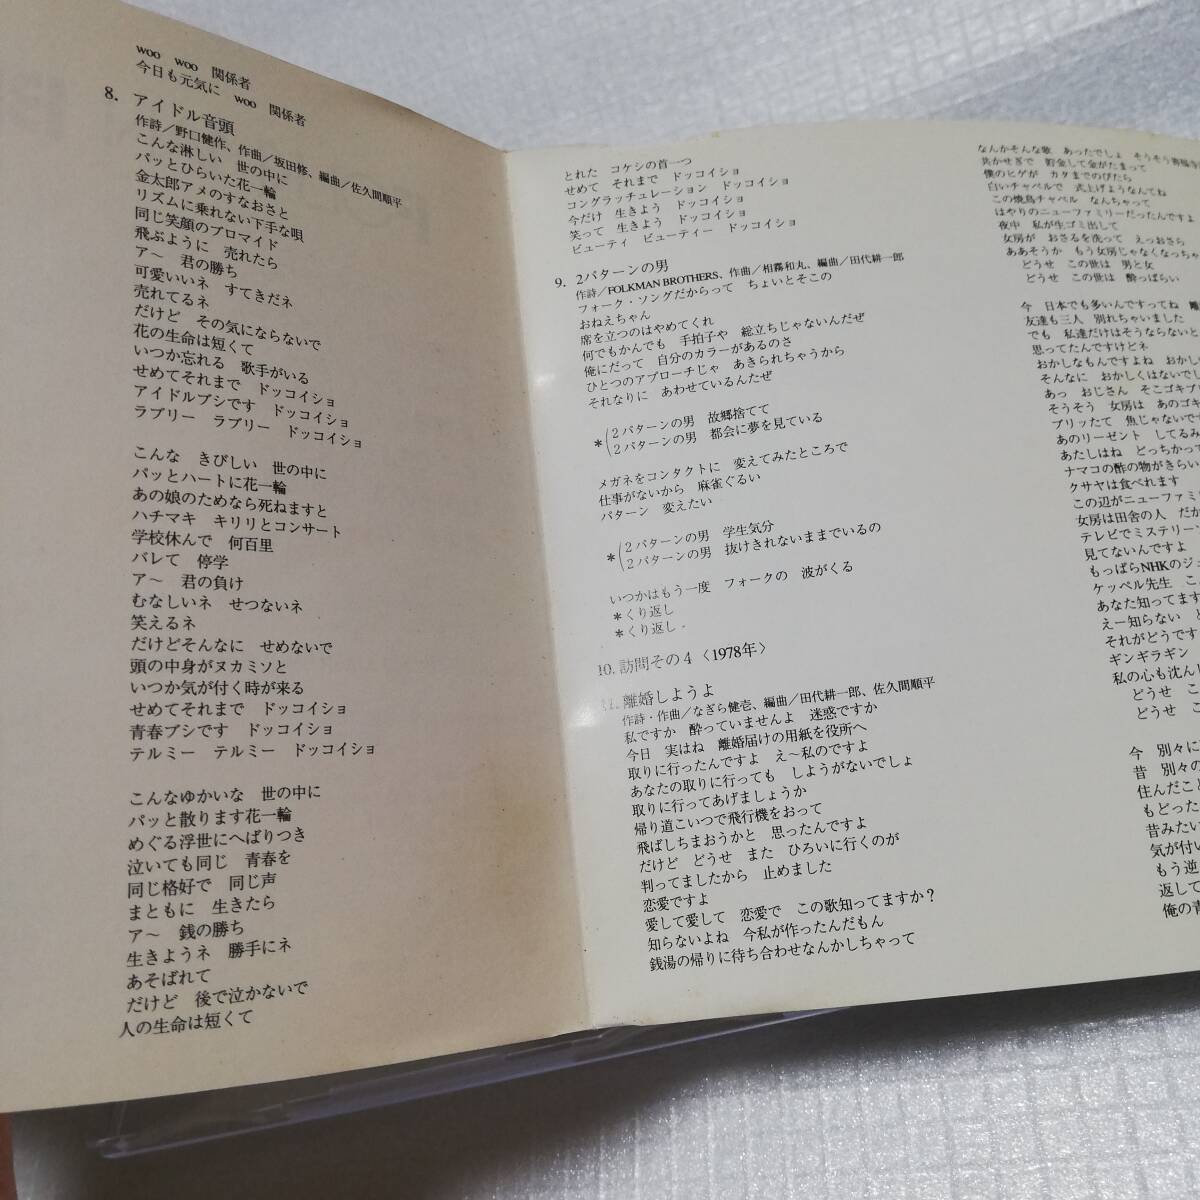 woo　woo　関係者
今日も元気に　woo　関係者
8. アイドル音頭
作詩／野口健作、作曲／坂田修、編曲／佐久間順平
こんな淋しい　世の中に
パッとひらいた花一輪
金太郎アメのすなおさと
リズムに乗れない下手な唄
同じ笑顔のブロマイド
飛ぶように　売れたら
ア〜　君の勝ち
可愛いいネ　すてきだネ
売れてるネ
だけど　その気にならないで
花の生命は短くて
いつか忘れる　歌手がいる
せめてそれまで　ドッコイショ
アイドルブシです　ドッコイショ
ラブリー　ラブリー　ドッコイショ
こんな　きびしい　世の中に
パッとハートに花一輪
あの娘のためなら死ねますと
ハチマキ　キリリとコンサート
学校休んで　何百里
バレて　停学
ア〜　君の負け
むなしいネ　せつないネ
笑えるネ
だけどそんなに　せめないで
頭の中身がヌカミソと
いつか気が付く時が来る
せめてそれまで　ドッコイショ
青春ブシです　ドッコイショ
テルミー　テルミー　ドッコイショ
こんなゆかいな　世の中に
パッと散ります花一輪
めぐる浮世にへばりつき
泣いても同じ　青春を
同じ格好で　同じ声
まともに　生きたら
ア〜　銭の勝ち
生きようネ　勝手にネ
あそばれて
だけど　後で泣かないで
人の生命は短くて
とれた　コケシの首一つ
せめて　それまで　ドッコイショ
コングラッチュレーション　ドッコイショ
今だけ　生きよう　ドッコイショ
笑って　生きよう　ドッコイショ
ビューティ　ビューティー　ドッコイショ
9. 2パターンの男
作詩／FOLKMAN BROTHERS、作曲／相霧和丸、編曲／田代耕一郎
フォーク・ソングだからって　ちょいとそこの
おねえちゃん
席を立つのはやめてくれ
何でもかんでも　手拍子や　総立ちじゃないんだぜ
俺にだって　自分のカラーがあるのさ
ひとつのアプローチじゃ　あきられちゃうから
それなりに　あわせているんだぜ
*(2パターンの男　故郷捨てて
2パターンの男　都会に夢を見ている
メガネをコンタクトに　変えてみたところで
仕事がないから　麻雀ぐるい
パターン　変えたい
*(2パターンの男　学生気分
2パターンの男　抜けきれないままでいるの
いつかはもう一度　フォークの　波がくる
*くり返し
*くり返し
10. 訪問その4〈1978年〉
11. 離婚しようよ
作詩・作曲／なぎら健壱、編曲／田代耕一郎、佐久間順平
私ですか　酔っていませんよ　迷惑ですか
今日　実はね　離婚届けの用紙を役所へ
取りに行ったんですよ　え〜私のですよ
あなたの取りに行っても　しようがないでしょ
取りに行ってあげましょうか
帰り道こいつで飛行機をおって
飛ばしちまおうかと　思ったんですよ
だけど　どうせ　また　ひろいに行くのが
判ってましたから　止めました
恋愛ですよ
愛して愛して　恋愛で　この歌知ってますか？
知らないよね　今私が作ったんだもん
銭湯の帰りに待ち合わせなんかしちゃって
なんかそんな歌　あったでしょ　そうそう
共かせぎで　貯金して金がたまって
僕のヒゲが　カタまでのびたら
白いチャペルで　式上げようなんてね
この焼鳥チャペル　なんちゃって
はやりのニューファミリーだったんですよ
夜中　私が生ゴミ出して
女房が　おさるを洗って　えっおさら
ああそうか　もう女房じゃなくなっちゃ
どうせ　この世は　男と女
どうせ　この世は　酔っぱらい
今　日本でも多いんですってね　離
友達も三人　別れちゃいました
でも　私達だけはそうならないと
思ってたんですけどネ
おかしなもんですよね　おかし
そんなに　おかしくはないでし
あっ　おじさん　そこゴキブ
そうそう　女房は　あのゴキ
ブリッたて　魚じゃないです
あのリーゼント　してるみ
あたしはね　どっちかって
ナマコの酢の物がきらい
クサヤは食べれます
この辺がニューファミ
女房は田舎の人　だか
テレビでミステリー
見てないんですよ
もっぱらNHKのジュ
ケッペル先生　こ
あなた知ってます
えー知らない　と
それがどうです
ギンギラギン
私の心も沈んし
どうせ　こ
どうせ　こ
今　別々に
昔　別々の
住んだこと
もどった
昔みたい
気が付い
もう逆
返して
俺の青